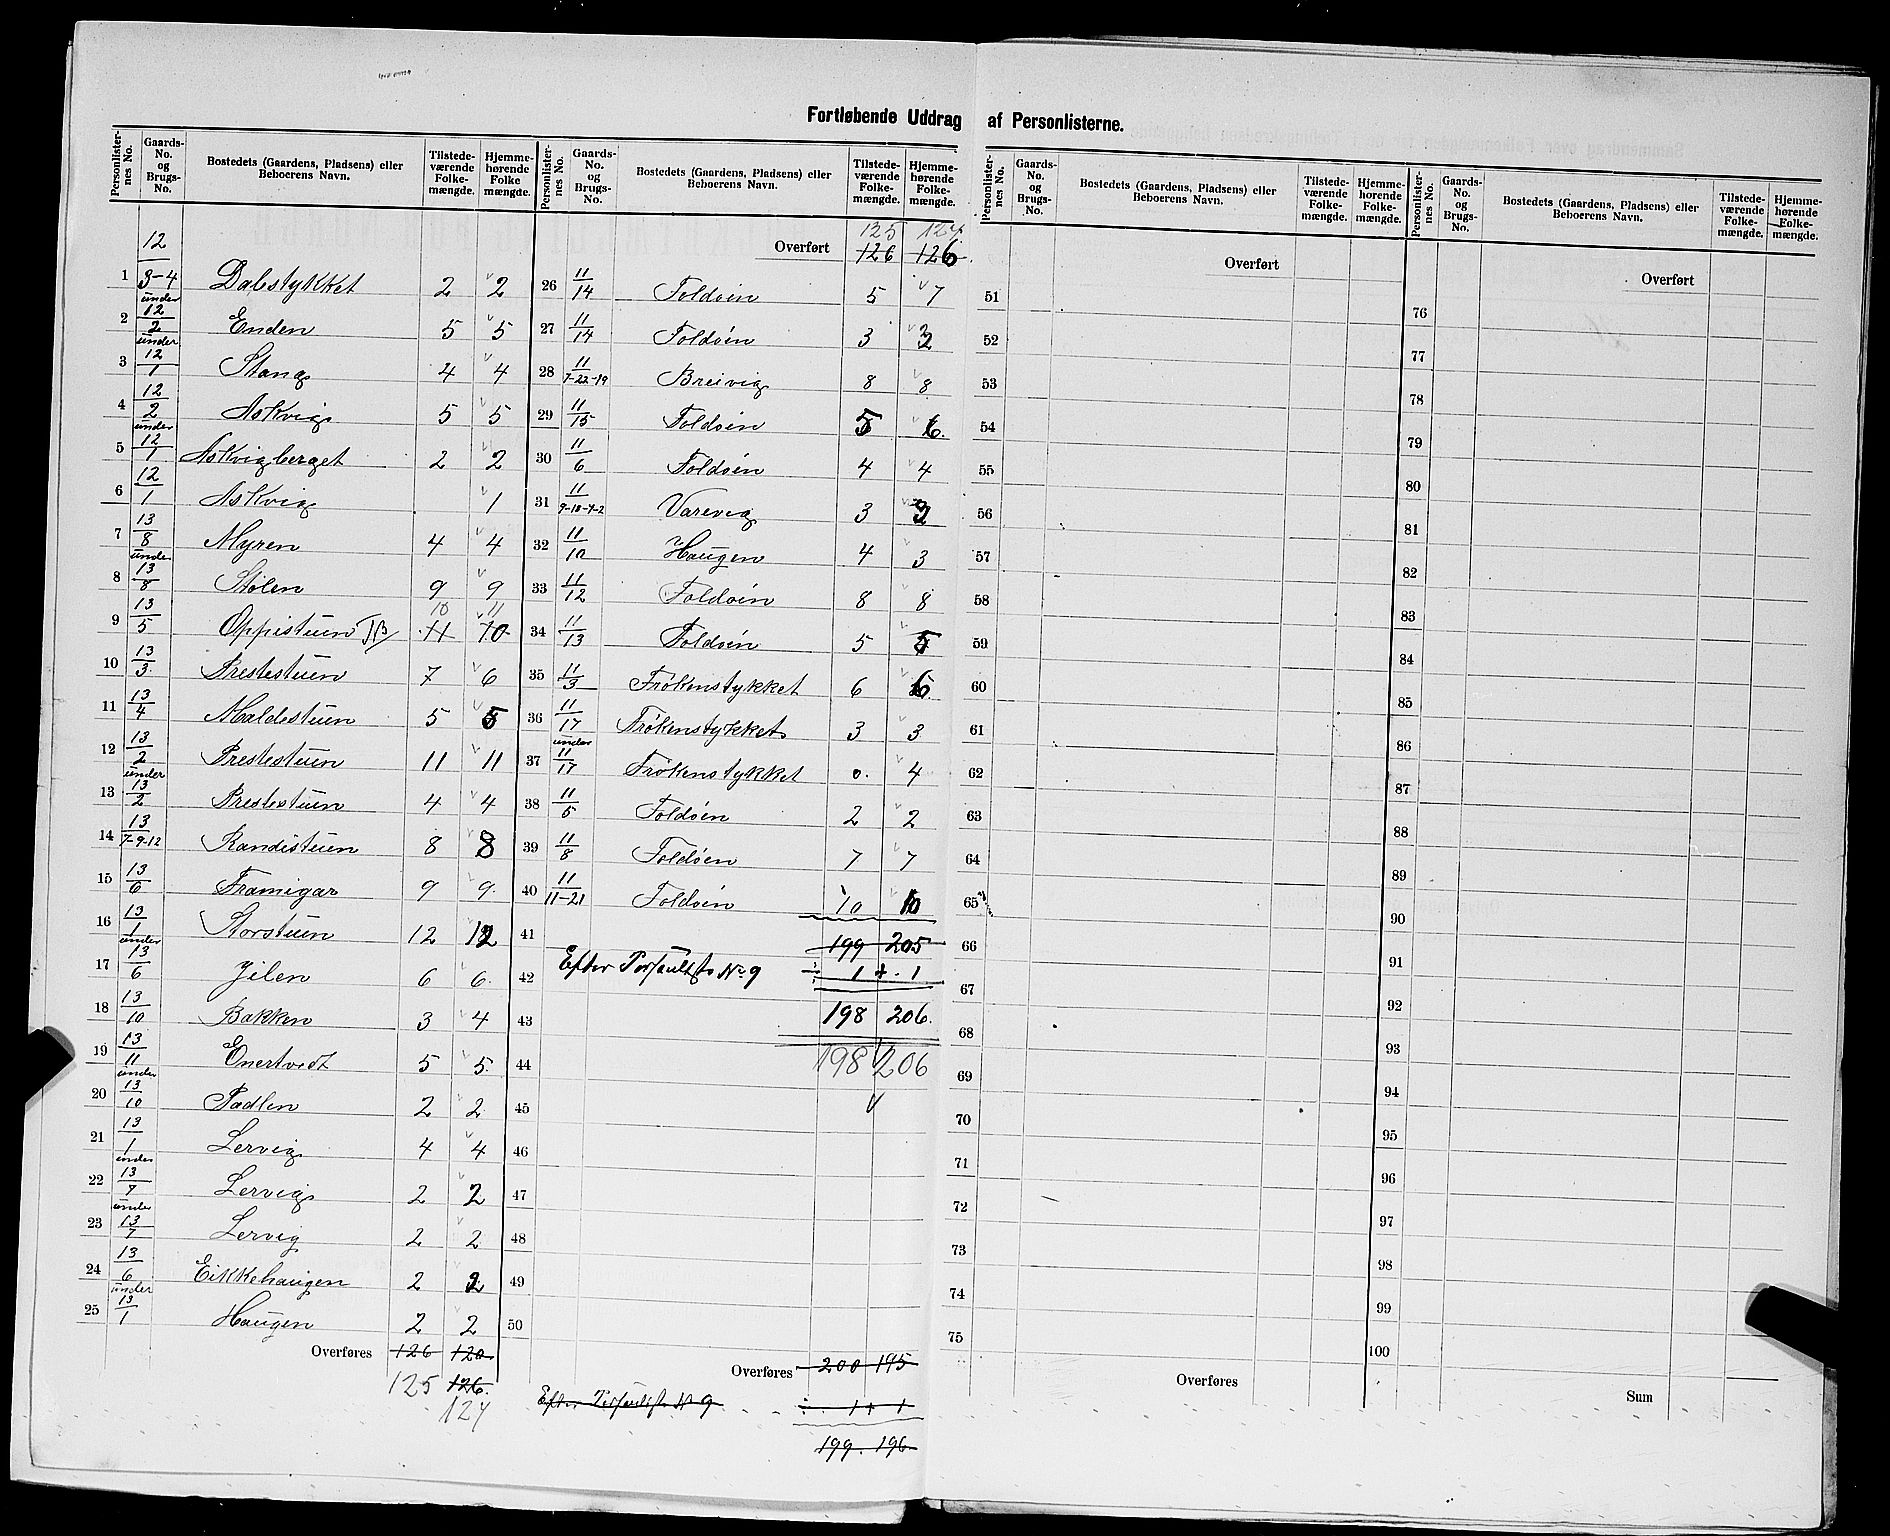 Fortløbende Uddrag af Personlisterne.
Personlisternes No. | Gaards-No. og Brugs-No. | Bostedets (Gaardens, Pladsens) eller Beboerens Navn. | Tilstedeværende Folkemængde. | Hjemmehørende Folkemængde.
1 12/3-4 Dalstykket 2 2
2 under 12/2 Enden 5 5
3 under 12/1 Stang 4 4
4 12/2 Askvig 5 5
5 under 12/1 Askvigberget 2 2
6 12/1 Askvig 1
7 13/8 Myren 4 4
8 under 13/8 Stølen 9 9
10 11
9 13/5 Oppistuen 11 10
10 13/3 Prestestuen 7 6
11 13/4 Maldestuen 5 5
12 13/2 Prestestuen 11 11
13 under 13/2 Prestestuen 4 4
14 13/7-9-12 Randistuen 8 8
15 13/6 Framigar 9 9
16 13/1 Storstuen 12 12
17 under 13/6 Jilen 6 6
18 13/10 Bakken 3 4
19 13/11 Enertvedt 5 5
20 under 13/10 Padlen 2 2
21 13/1 Lervig 4 4
22 under 13/7 Lervig 2 2
23 under 13/7 Lervig 2 2
24 13/6 Eikkehaugen 2 2
25 under 13/1 Haugen 2 2
Overføres 126 120
125 126.
127
Personlisternes No. | Gaards-No. og Brugs-No. | Bostedets (Gaardens, Pladsens) eller Beboerens Navn. | Tilstedeværende Folkemængde. | Hjemmehørende Folkemængde.
125 127
Overført 126 126
26 11/14 Foldøen 5 7
27 11/14 Foldøen 3
28 11/7-22-19 Breivig 8 8
29 11/15 Foldøen 5 6
30 11/6 Foldøen 4 4
31 11/9-10-7-2 Varevig 3
32 11/10 Haugen 4 3
33 11/12 Foldøen 8 8
34 11/13 Foldøen 5 5
35 11/3 Frøkenstykket 6 6
36 11/17 Frøkenstykket 3 3
37 under 11/17 Frøkenstykket 0 4
38 11/5 Foldøen 2 2
39 11/8 Foldøen 7 7
40 11/11-21 Foldøen 10 10
41 199 205
42 Efter No 9 ÷ 1 + 1
43 198 206.
44 198 206
45
46
47
48
49
50
Overføres 200 195
Efter No 9 ÷ 1 + 1
199. 196
Personlisternes No. | Gaards-No. og Brugs-No. | Bostedets (Gaardens, Pladsens) eller Beboerens Navn. | Tilstedeværende Folkemængde. | Hjemmehørende Folkemængde.
Overført
51
52
53
54
55
56
57
58
59
60
61
62
63
64
65
66
67
68
69
70
71
72
73
74
75
Overføres
Personlisternes No. | Gaards-No. og Brugs-No. | Bostedets (Gaardens, Pladsens) eller Beboerens Navn. | Tilstedeværende Folkemængde. | Hjemmehørende Folkemængde.
Overført
76
77
78
79
80
81
82
83
84
85
86
87
88
89
90
91
92
93
94
95
96
97
98
99
100
Sum